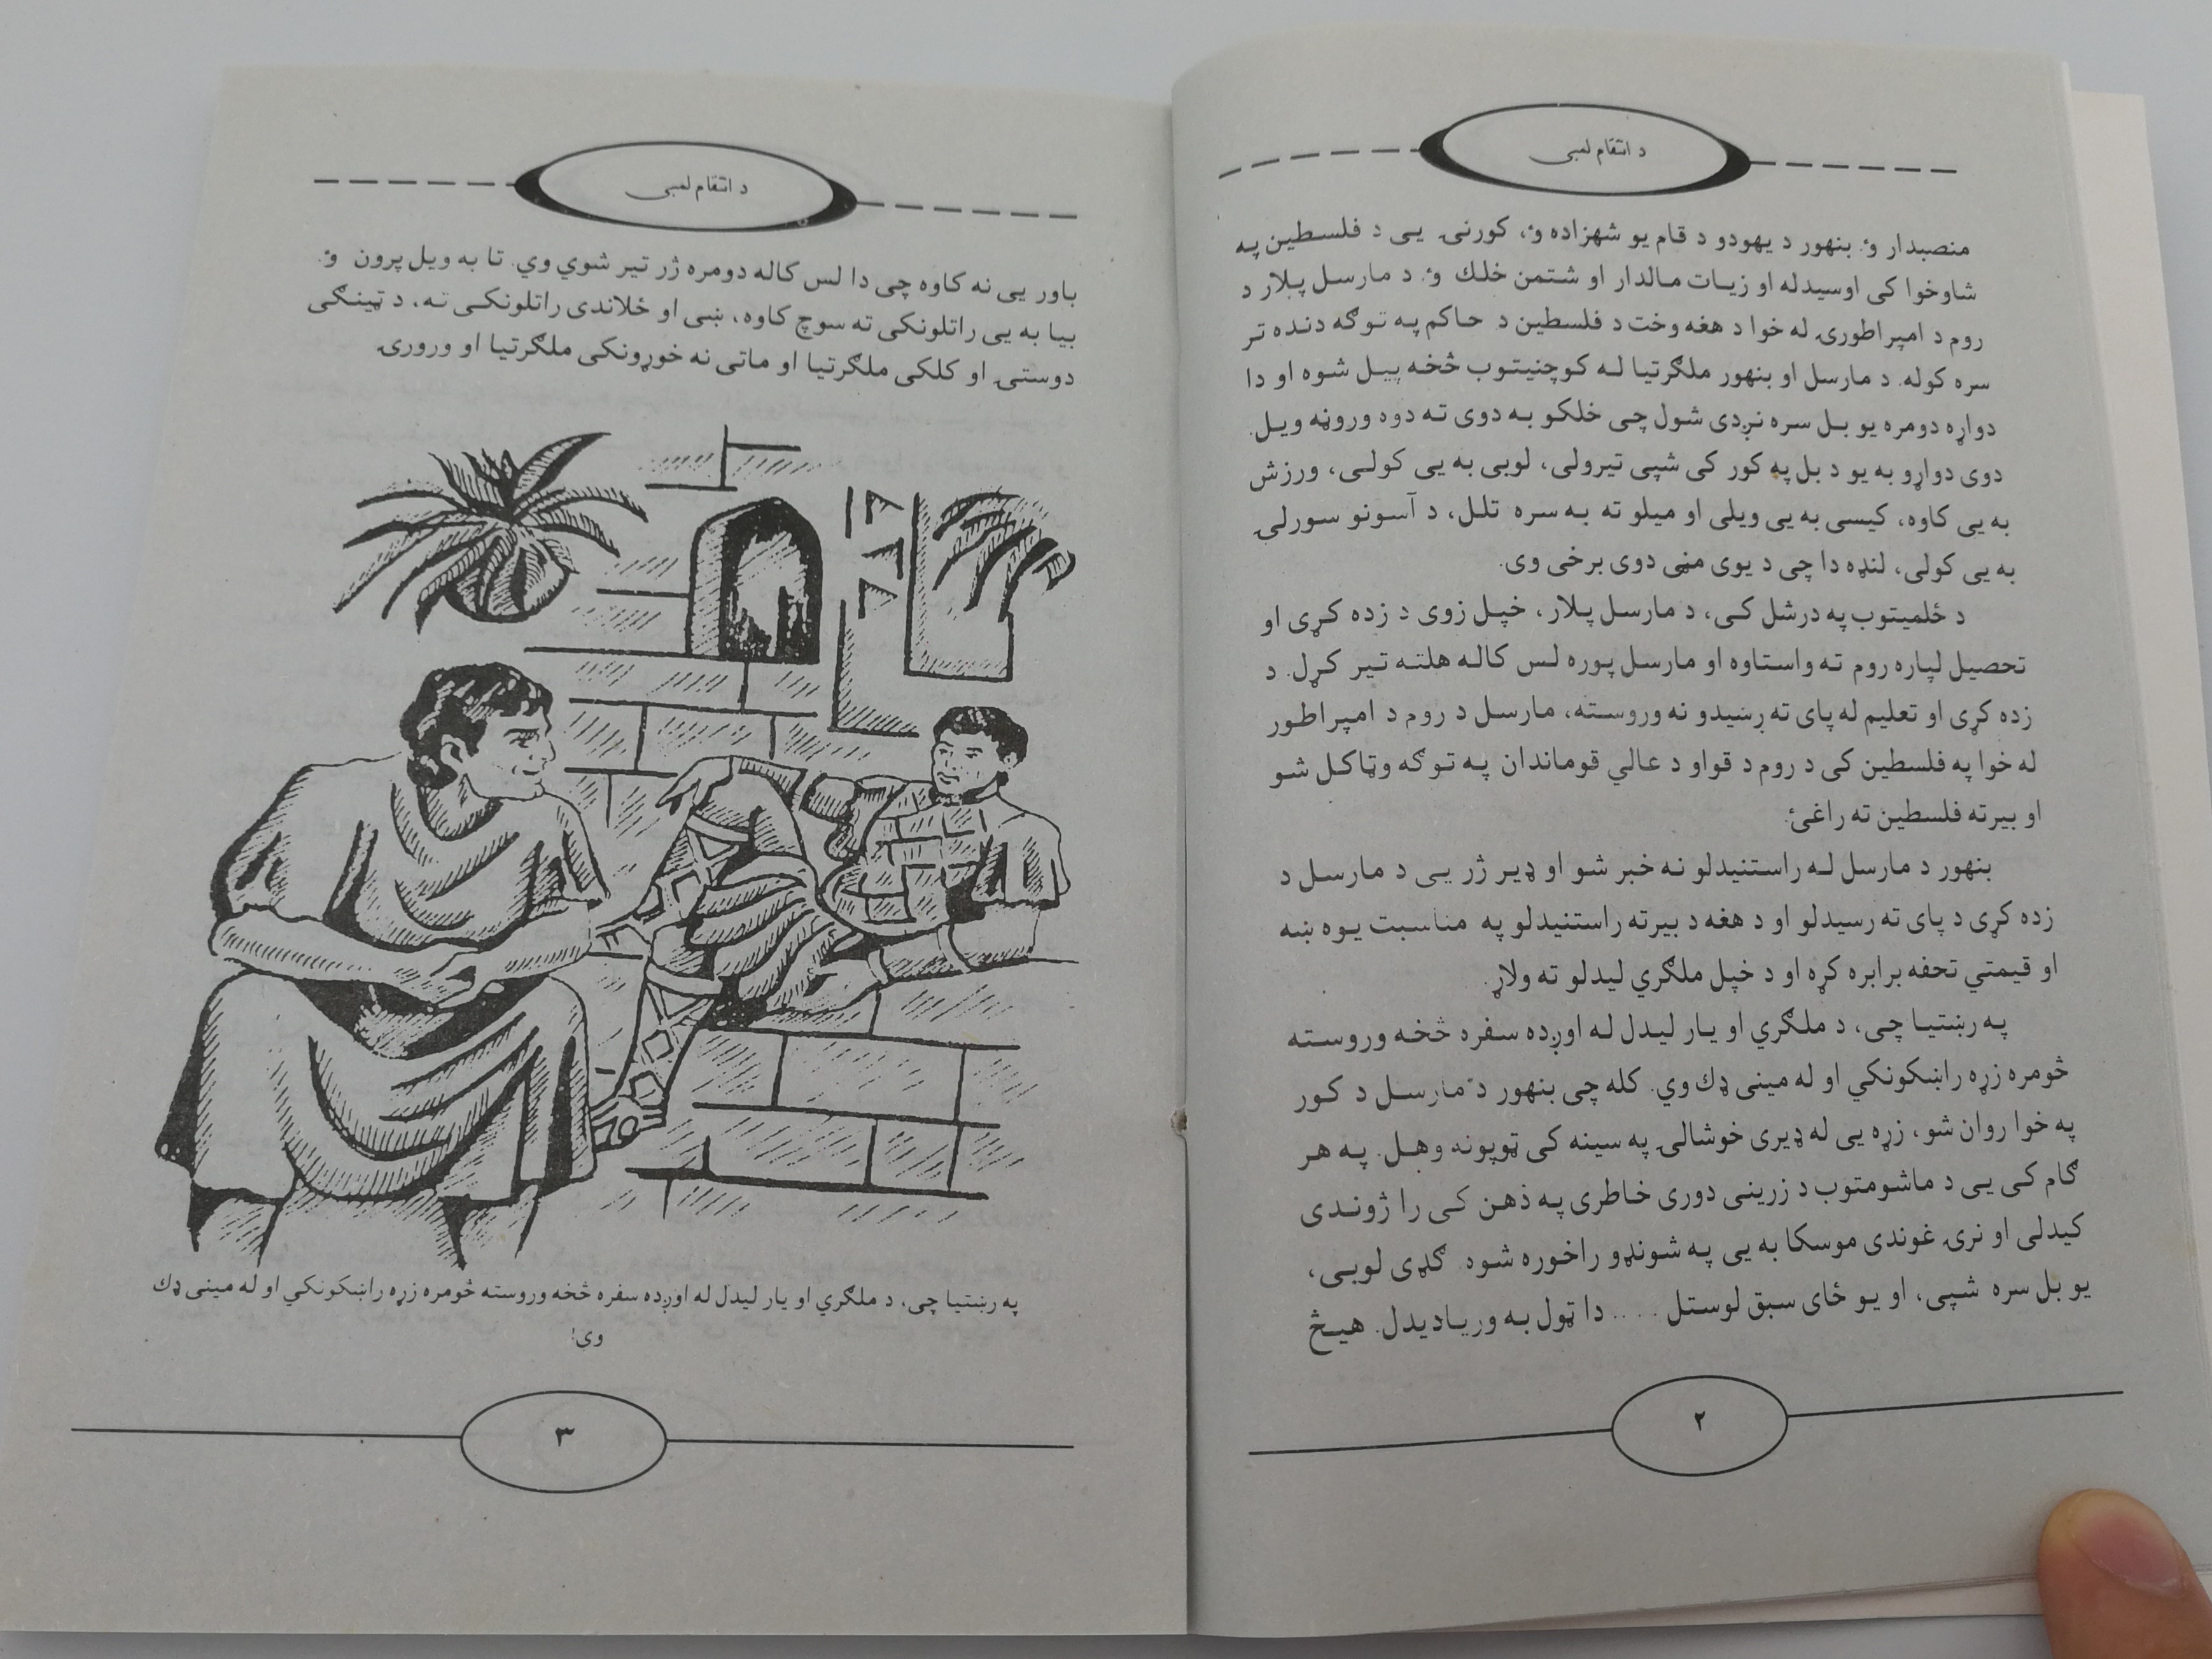 د انتقام لمبی
منصبدار وﺅ. بنهور د یهودو د قام یو شهزاده وﺅ، کورنۍ یی د فلسطین په
شاوخوا کی اوسیدله او زیات مالدار او شتمن خلك وﺅ. د مارسل پلار د
روم د امپراطورۍ له خوا د هغه وخت د فلسطین د حاکم په توګه دنده تر
سره کوله. د مارسل او بنهور ملګرتیا له کوچنیتوب څخه پیل شوه او دا
دواړه دومره یو بل سره نږدی شول چی خلکو به دوی ته دوه وروڼه ویل.
دوی دواړو به یو د بل په کور کی شپی تیرولی، لوبی به یی کولی، ورزش
به یی کاوه، کیسی به یی ویلی او میلو ته به سره تلل، د آسونو سورلۍ
به یی کولی، لنډه دا چی د یوی مڼی دوی برخی وی.
د ځلمیتوب په درشل کی، د مارسل پلار، خپل زوی د زده کړی او
تحصیل لپاره روم ته واستاوه او مارسل پوره لس کاله هلته تیر کړل. د
زده کړی او تعلیم له پای ته رسیدو نه وروسته، مارسل د روم د امپراطور
له خوا په فلسطین کی د روم د قواو د عالي قوماندان په توګه وټاکل شو
او بیرته فلسطین ته راغیٔ.
بنهور د مارسل له راستنیدلو نه خبر شو او ډیر ژر یی د مارسل د
زده کړی د پای ته رسیدلو او د هغه د بیرته راستنیدلو په مناسبت یوه ښه
او قیمتي تحفه برابره کړه او د خپل ملګري لیدلو ته ولاړ.
په رښتیا چی، د ملګري او یار لیدل له اوږده سفره څخه وروسته
څومره زړه راښکونکي او له مینی ډك وي. کله چی بنهور د مارسل د کور
په خوا روان شو، زړه یی له ډیری خوشالۍ په سینه کی ټوپونه وهل. په هر
ګام کی یی د ماشومتوب د زرینی دوری خاطری په ذهن کی را ژوندی
کیدلی او نرۍ غوندی موسکا به یی په شونډو راخوره شوه. ګډی لوبی،
یو بل سره شپی، او یو ځای سبق لوستل .... دا ټول به وریادیدل. هیڅ
۲
د انتقام لمبی
باور یی نه کاوه چی دا لس کاله دومره ژر تیر شوي وي. تا به ویل پرون وﺅ.
بیا به یی راتلونکی ته سوچ کاوه، ښی او ځلاندی راتلونکی ته، د ټینګی
دوستۍ او کلکی ملګرتیا او ماتی نه خوړونکی ملګرتیا او ورورۍ
په رښتیا چی، د ملګري او یار لیدل له اوږده سفره څخه وروسته څومره زړه راښکونکي او له مینی ډك
وی!
۳